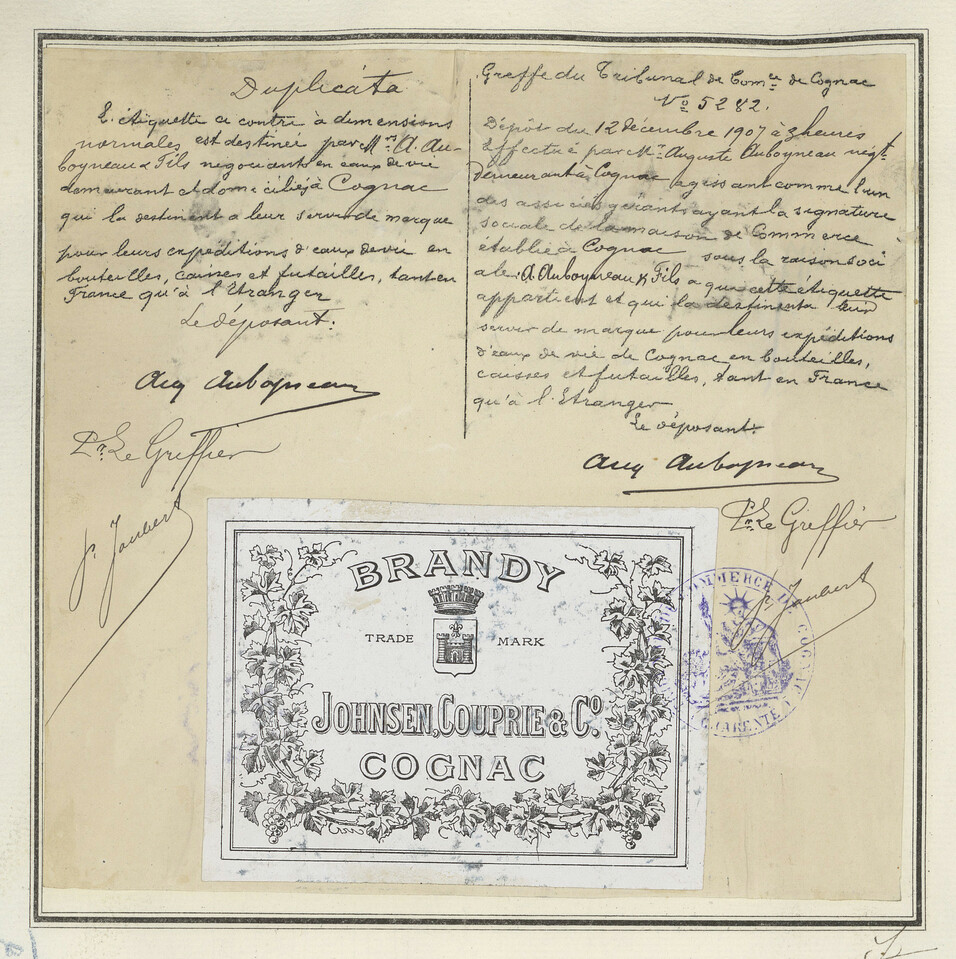 Duplicata
L'étiquette ci contre à dimensions
normales est destinée par Mr. A. Au-
boyneau & Fils negociants en eaux de vie
demeurant et domiciliés à Cognac
qui la destinent a leur servir de marque
pour leurs expéditions d'eaux de vie en
bouteilles, caisses et futailles, tant en
France qu'à l'Etranger
Le déposant.
Aug Auboyneau
Pr Le Greffier
P. Jaubert
Greffe du Tribunal de Comce de Cognac
No 5282.
Dépôt du 12 décembre 1907 à 3 heures
Effectué par Mr. Auguste Auboyneau négt.
demeurant à Cognac agissant comme l'un
des associés gérants ayant la signature
sociale de la maison de Commerce
établie à Cognac sous la raison soci
ale A Auboyneau & Fils a qui cette étiquette
appartient et qui la destinent a leur
servir de marque pour leurs expéditions
d'eaux de vie de Cognac en bouteilles,
caisses et futailles, tant en France
qu'à l'Etranger
Le déposant.
Aug Auboyneau
Pr Le Greffier
P. Jaubert
BRANDY
TRADE MARK
JOHNSEN, COUPRIE & Co.
COGNAC
COMMERCE DE COGNAC
CHARENTE